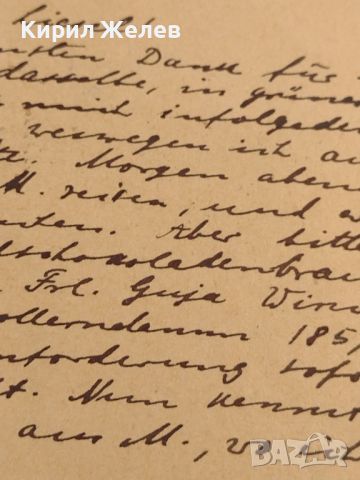 Кирил Желев
nsten Dank für
dasselbe, in grüne
mich infolgede
weswegen ich au
Morgen aben
M. reisen, und a
nten. Aber bitte
schokoladenbrau
Frl. Guja Win
ollerndamm 185,
nforderung sofo
st. Nun kennt
aus M.,
bazar.bg